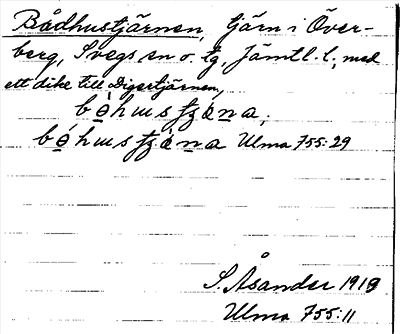 Bådhustjärnen, tjärn i Över-
berg, Svegs sn o. tg, Jämtl. l., med
ett dike till Digertjärnen,
Ulma 755:29
S. Åsander 1918
Ulma 755:11